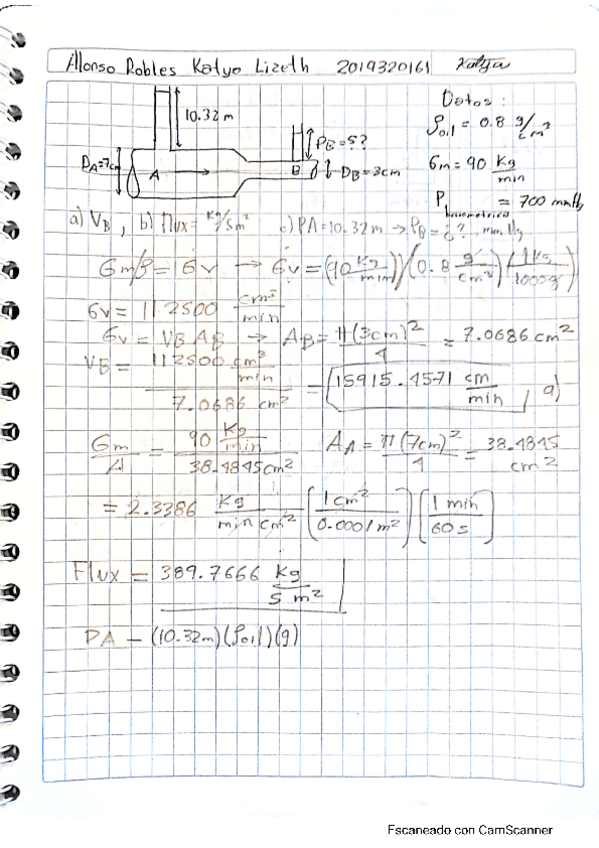 Alonso Robles Katya Lizeth 2019320161 Katya
Datos:
10.32 m
ρoil = 0.8 g/cm³
PB = ¿?
DA=7cm A B DB=3cm
Gm = 90 Kg/min
P barometrica = 700 mmHg
a) VB, b) flux= Kg/sm² c) PA=10.32 m → PB = ¿? mmHg
Gm/ρ = Gv → Gv = (90 Kg/min)/(0.8 g/cm³)(1Kg/1000g)
Gv = 112500 cm³/min
Gv = VB AB → AB = π(3cm)²/4 = 7.0686 cm²
VB = 112500 cm³/min / 7.0686 cm² = 15915.4571 cm/min, a)
Gm/A = 90 Kg/min / 38.4845cm² AA = π(7cm)²/4 = 38.4845 cm²
= 2.3386 Kg/min cm² (1cm²/0.0001m²) (1 min/60s)
Flux = 389.7666 Kg/s m²
PA - (10.32m)(ρoil)(g)
Escaneado con CamScanner